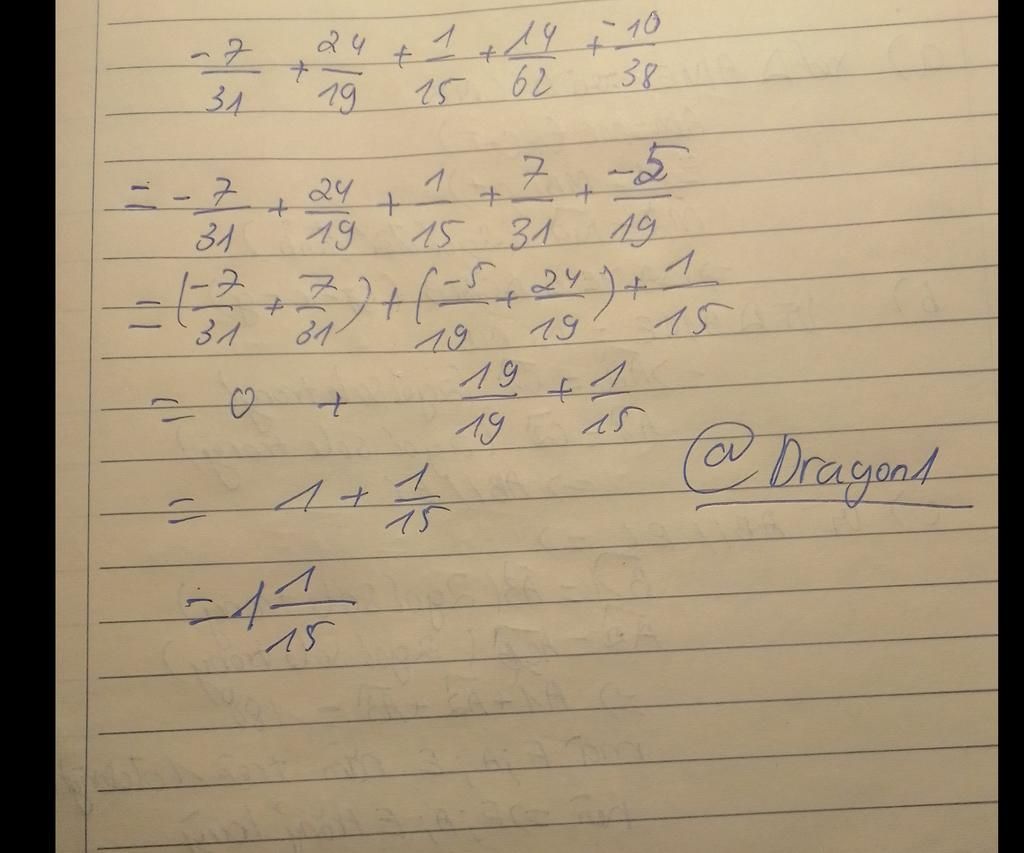 -7/31 + 24/19 + 1/15 + 14/62 + -10/38
= -7/31 + 24/19 + 1/15 + 7/31 + -5/19
= (-7/31 + 7/31) + (-5/19 + 24/19) + 1/15
= 0 + 19/19 + 1/15
@Dragon1
= 1 + 1/15
= 1 1/15